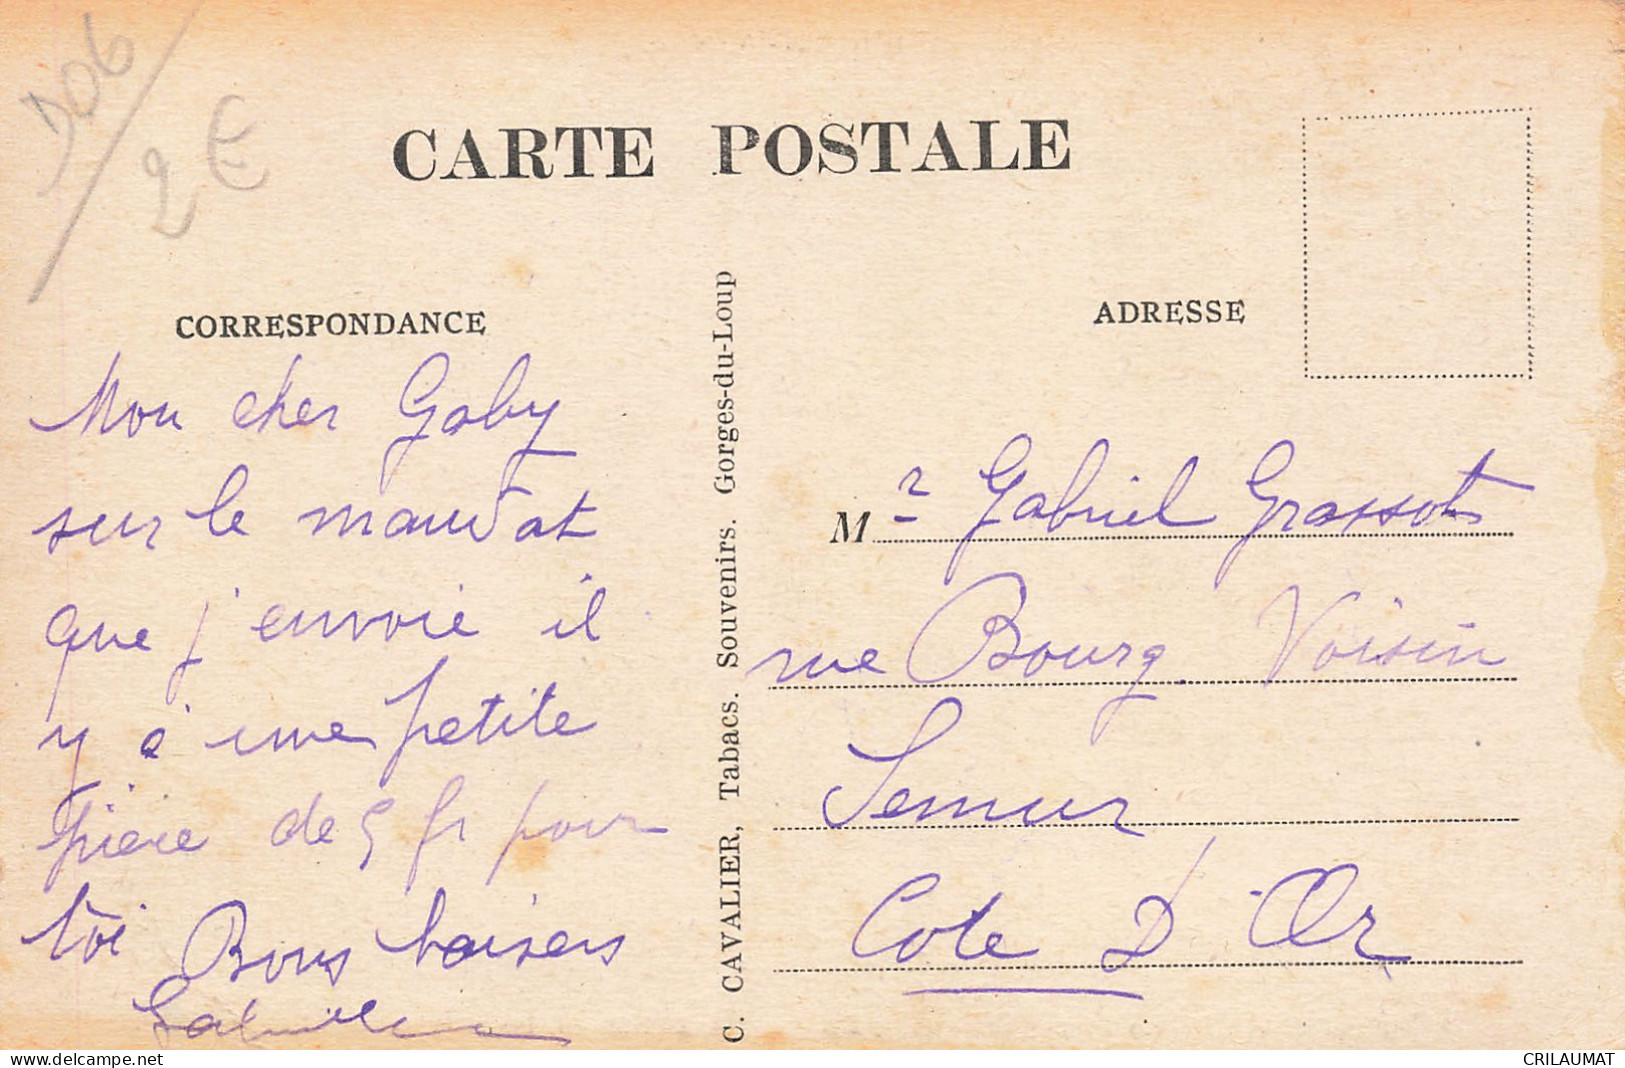 D06
2€
CARTE POSTALE
CORRESPONDANCE
ADRESSE
Mon cher Gaby
sur le mandat
que j'envoie il
y a une petite
pièce de 5 fr pour
toi Bons baisers
C. CAVALIER, Tabacs. Souvenirs. Gorges-du-Loup
Mr Gabriel Grassot
rue Bourg Voisin
Semur
Cote D'Or
CRILAUMAT